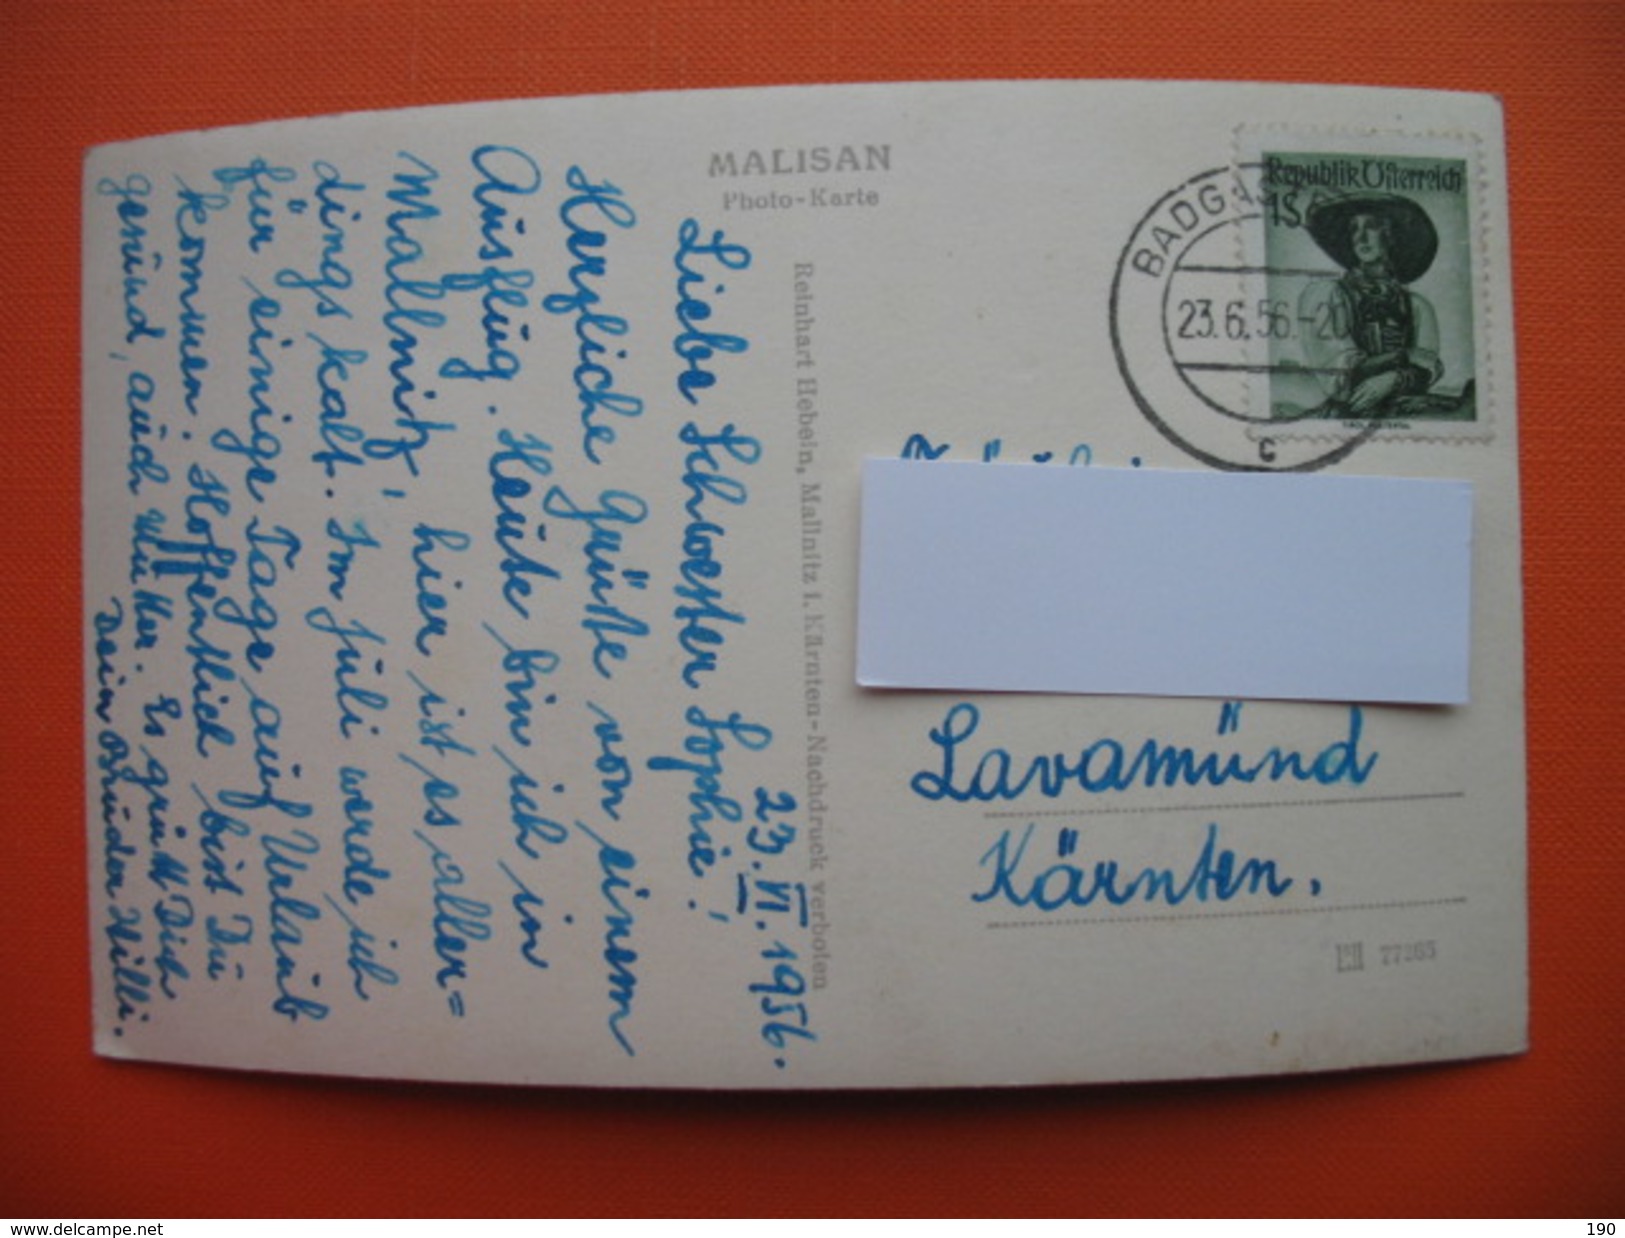 MALISAN
Photo-Karte
Reinhart Hebein, Mallnitz i. Kärnten-Nachdruck verboten
23. VI. 1956.
Liebe Schwester Sophie!
Herzliche Grüße von einem
Ausflug. Heute bin ich in
Mallnitz, hier ist es aller=
dings kalt. Im Juli werde ich
für einige Tage auf Urlaub
kommen. Hoffentlich bist Du
gesund, auch Mutter. Es grüßt Dich
Dein Bruder Willi.
Republik Österreich
1S
BADGAST
23.6.56.-20
c
Lavamünd
Kärnten.
77265
www.delcampe.net
190